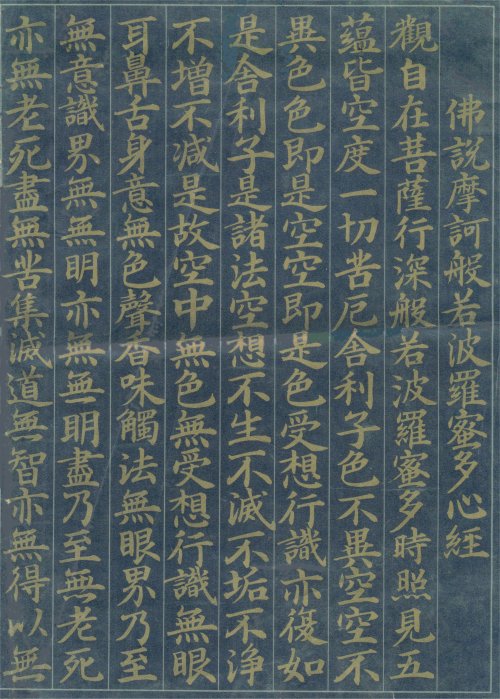 佛說摩訶般若波羅蜜多心經
觀自在菩薩行深般若波羅蜜多時照見五
蘊皆空度一切苦厄舍利子色不異空空不
異色色即是空空即是色受想行識亦復如
是舍利子是諸法空想不生不滅不垢不淨
不增不減是故空中無色無受想行識無眼
耳鼻舌身意無色聲香味觸法無眼界乃至
無意識界無無明亦無無明盡乃至無老死
亦無老死盡無苦集滅道無智亦無得以無